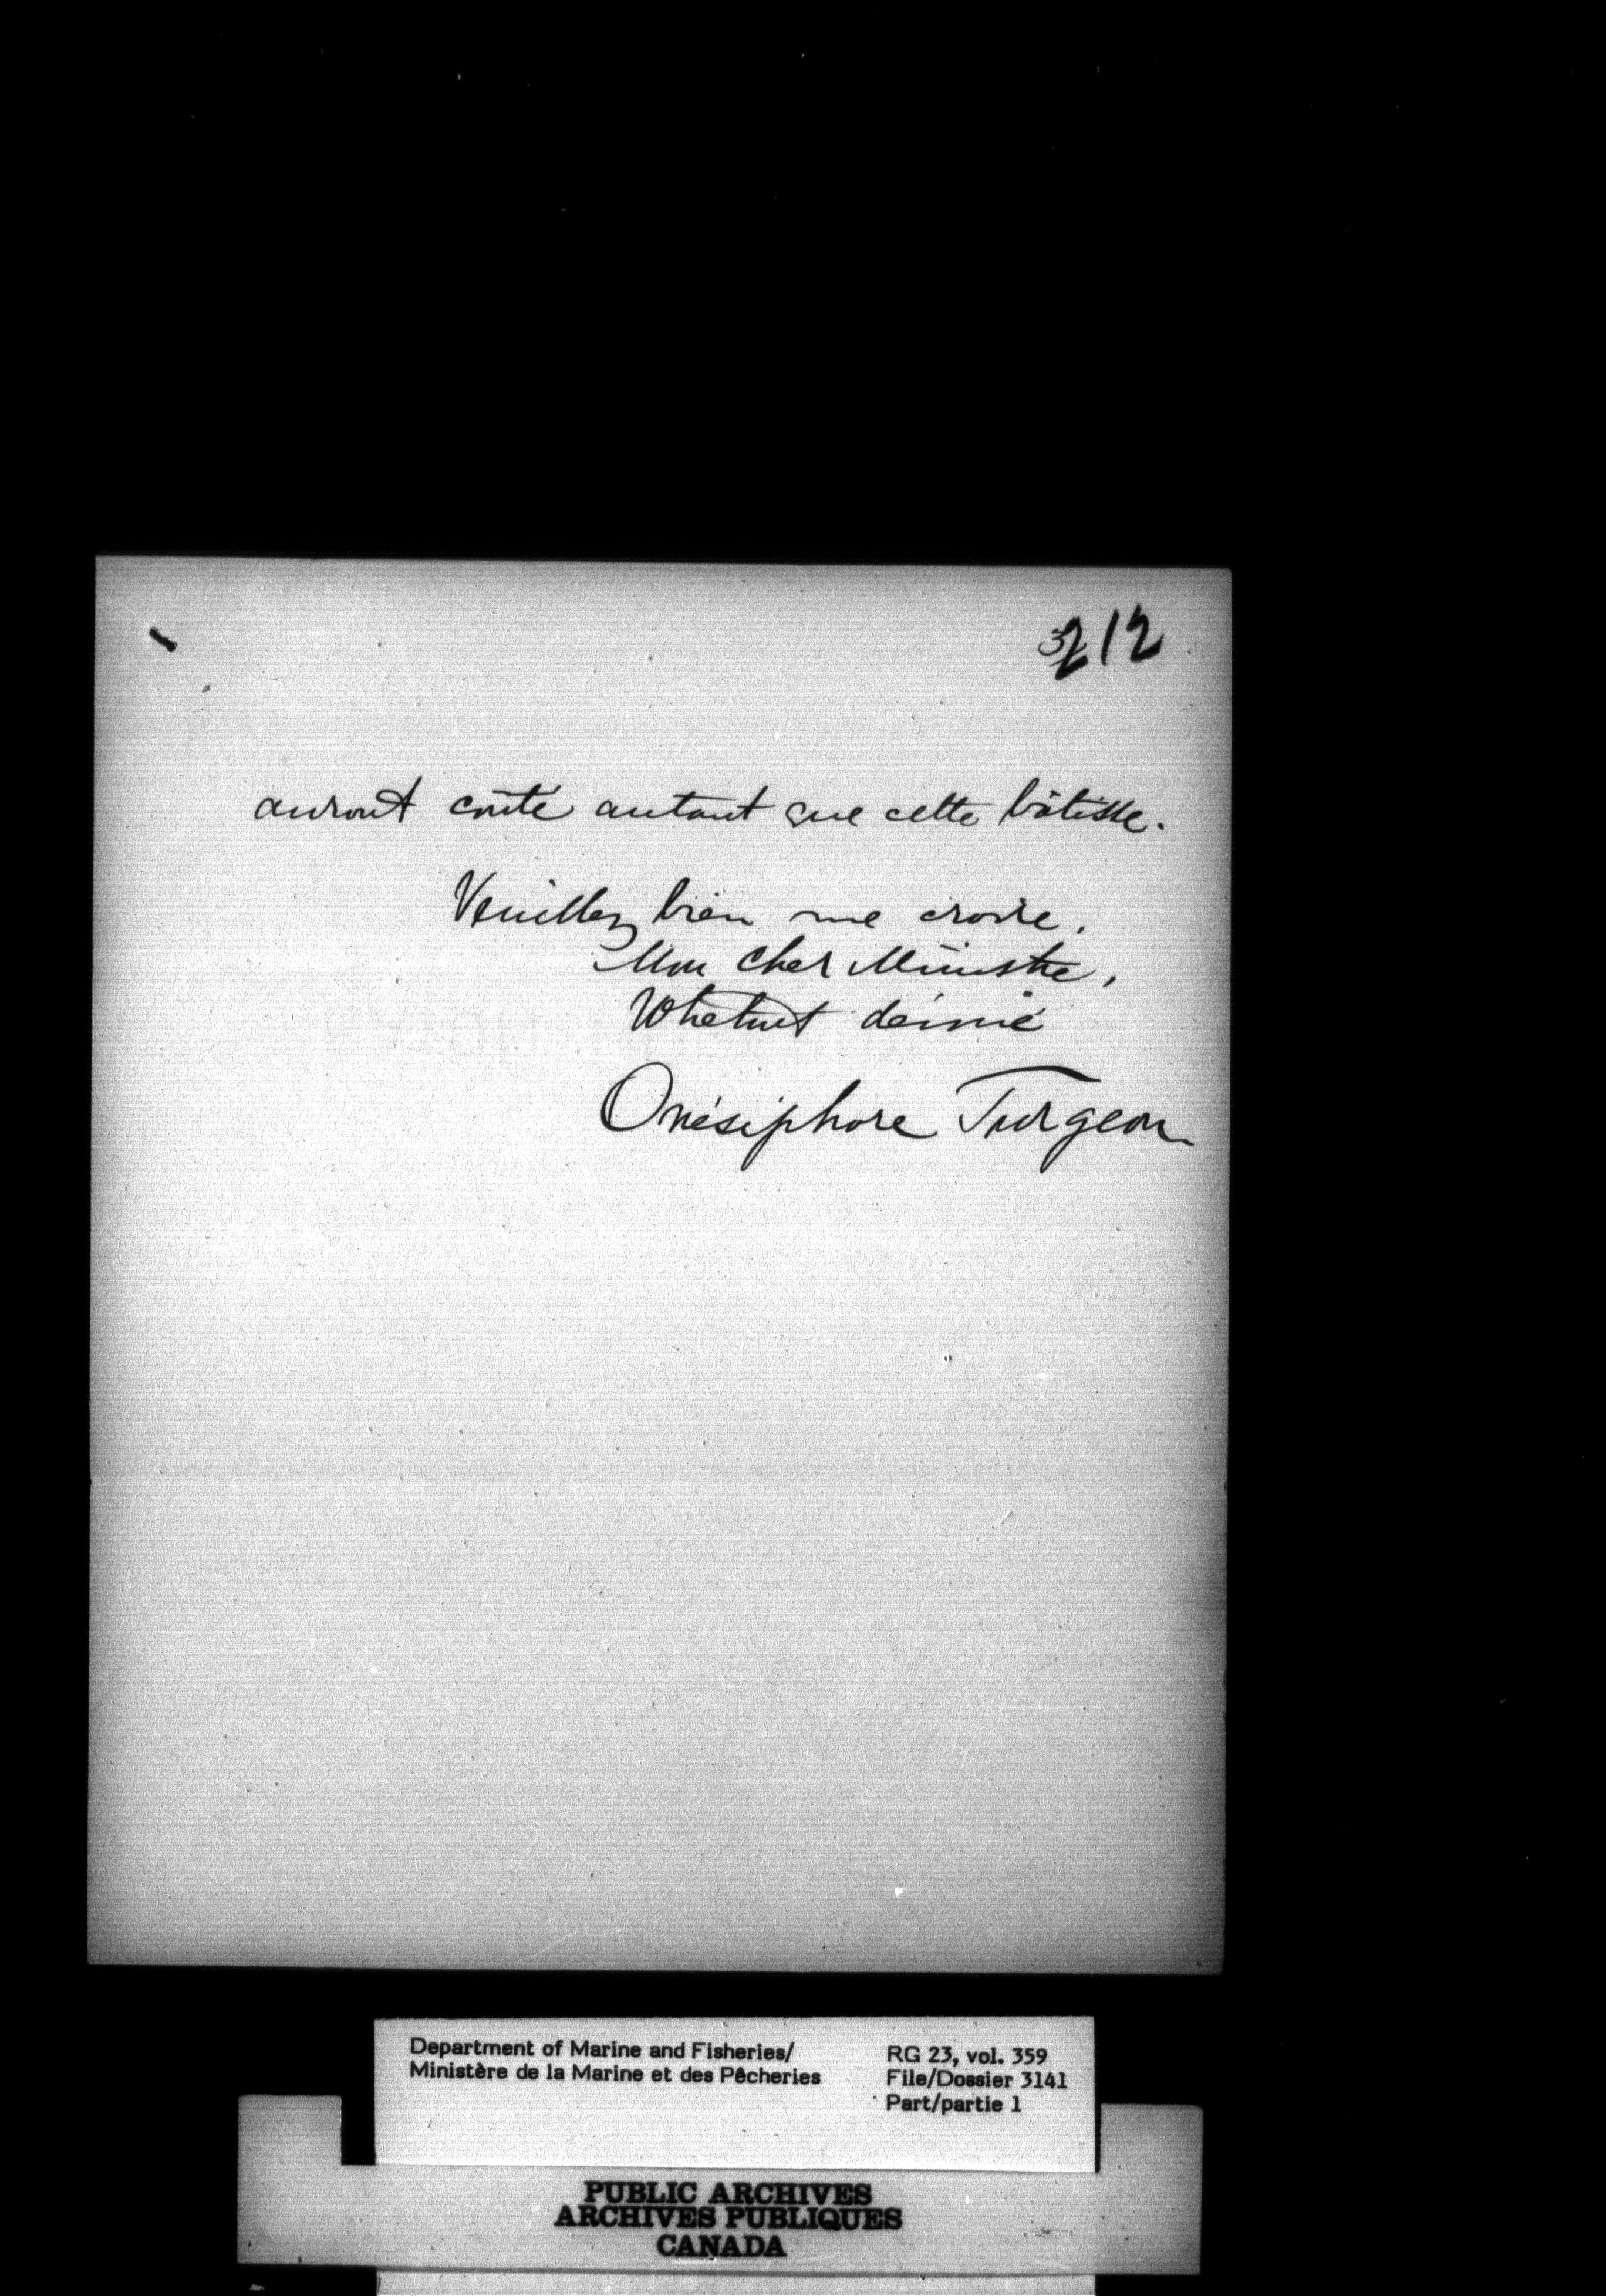 3212
auront coûté autant que cette bâtisse.
Veuillez bien me croire,
Mon cher Ministre,
Votre tout dévoué
Onésiphore Turgeon
Department of Marine and Fisheries/
Ministère de la Marine et des Pêcheries
RG 23, vol. 359
File/Dossier 3141
Part/partie 1
PUBLIC ARCHIVES
ARCHIVES PUBLIQUES
CANADA